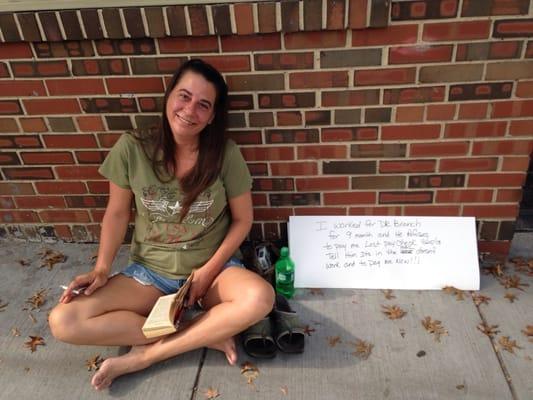 I worked for DR Branch
for 9 month and He Refuses
to pay me Last pay check
Tell Him its in the doesnt
work and to pay me Now!!